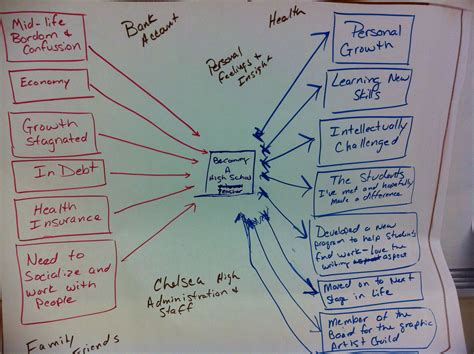 Mid-life
Bordom &
Confussion
Economy
Growth
Stagnated
In Debt
Health
Insurance
Need to
Socialize and
work with
People
Family
Friends
Bank
Account
Personal
Feelings &
Insight
Health
Becoming
A
High School
Teacher
Chelsea High
Administration &
Staff
Personal
Growth
Learning New
Skills
Intellectually
Challenged
The Students
I've met and hopefully
Made a difference
Developed a New
program to help students
find work - love the
writing aspect
Moved on to Next
Stage in Life
Member of the
Board for the graphic
Artist Guild